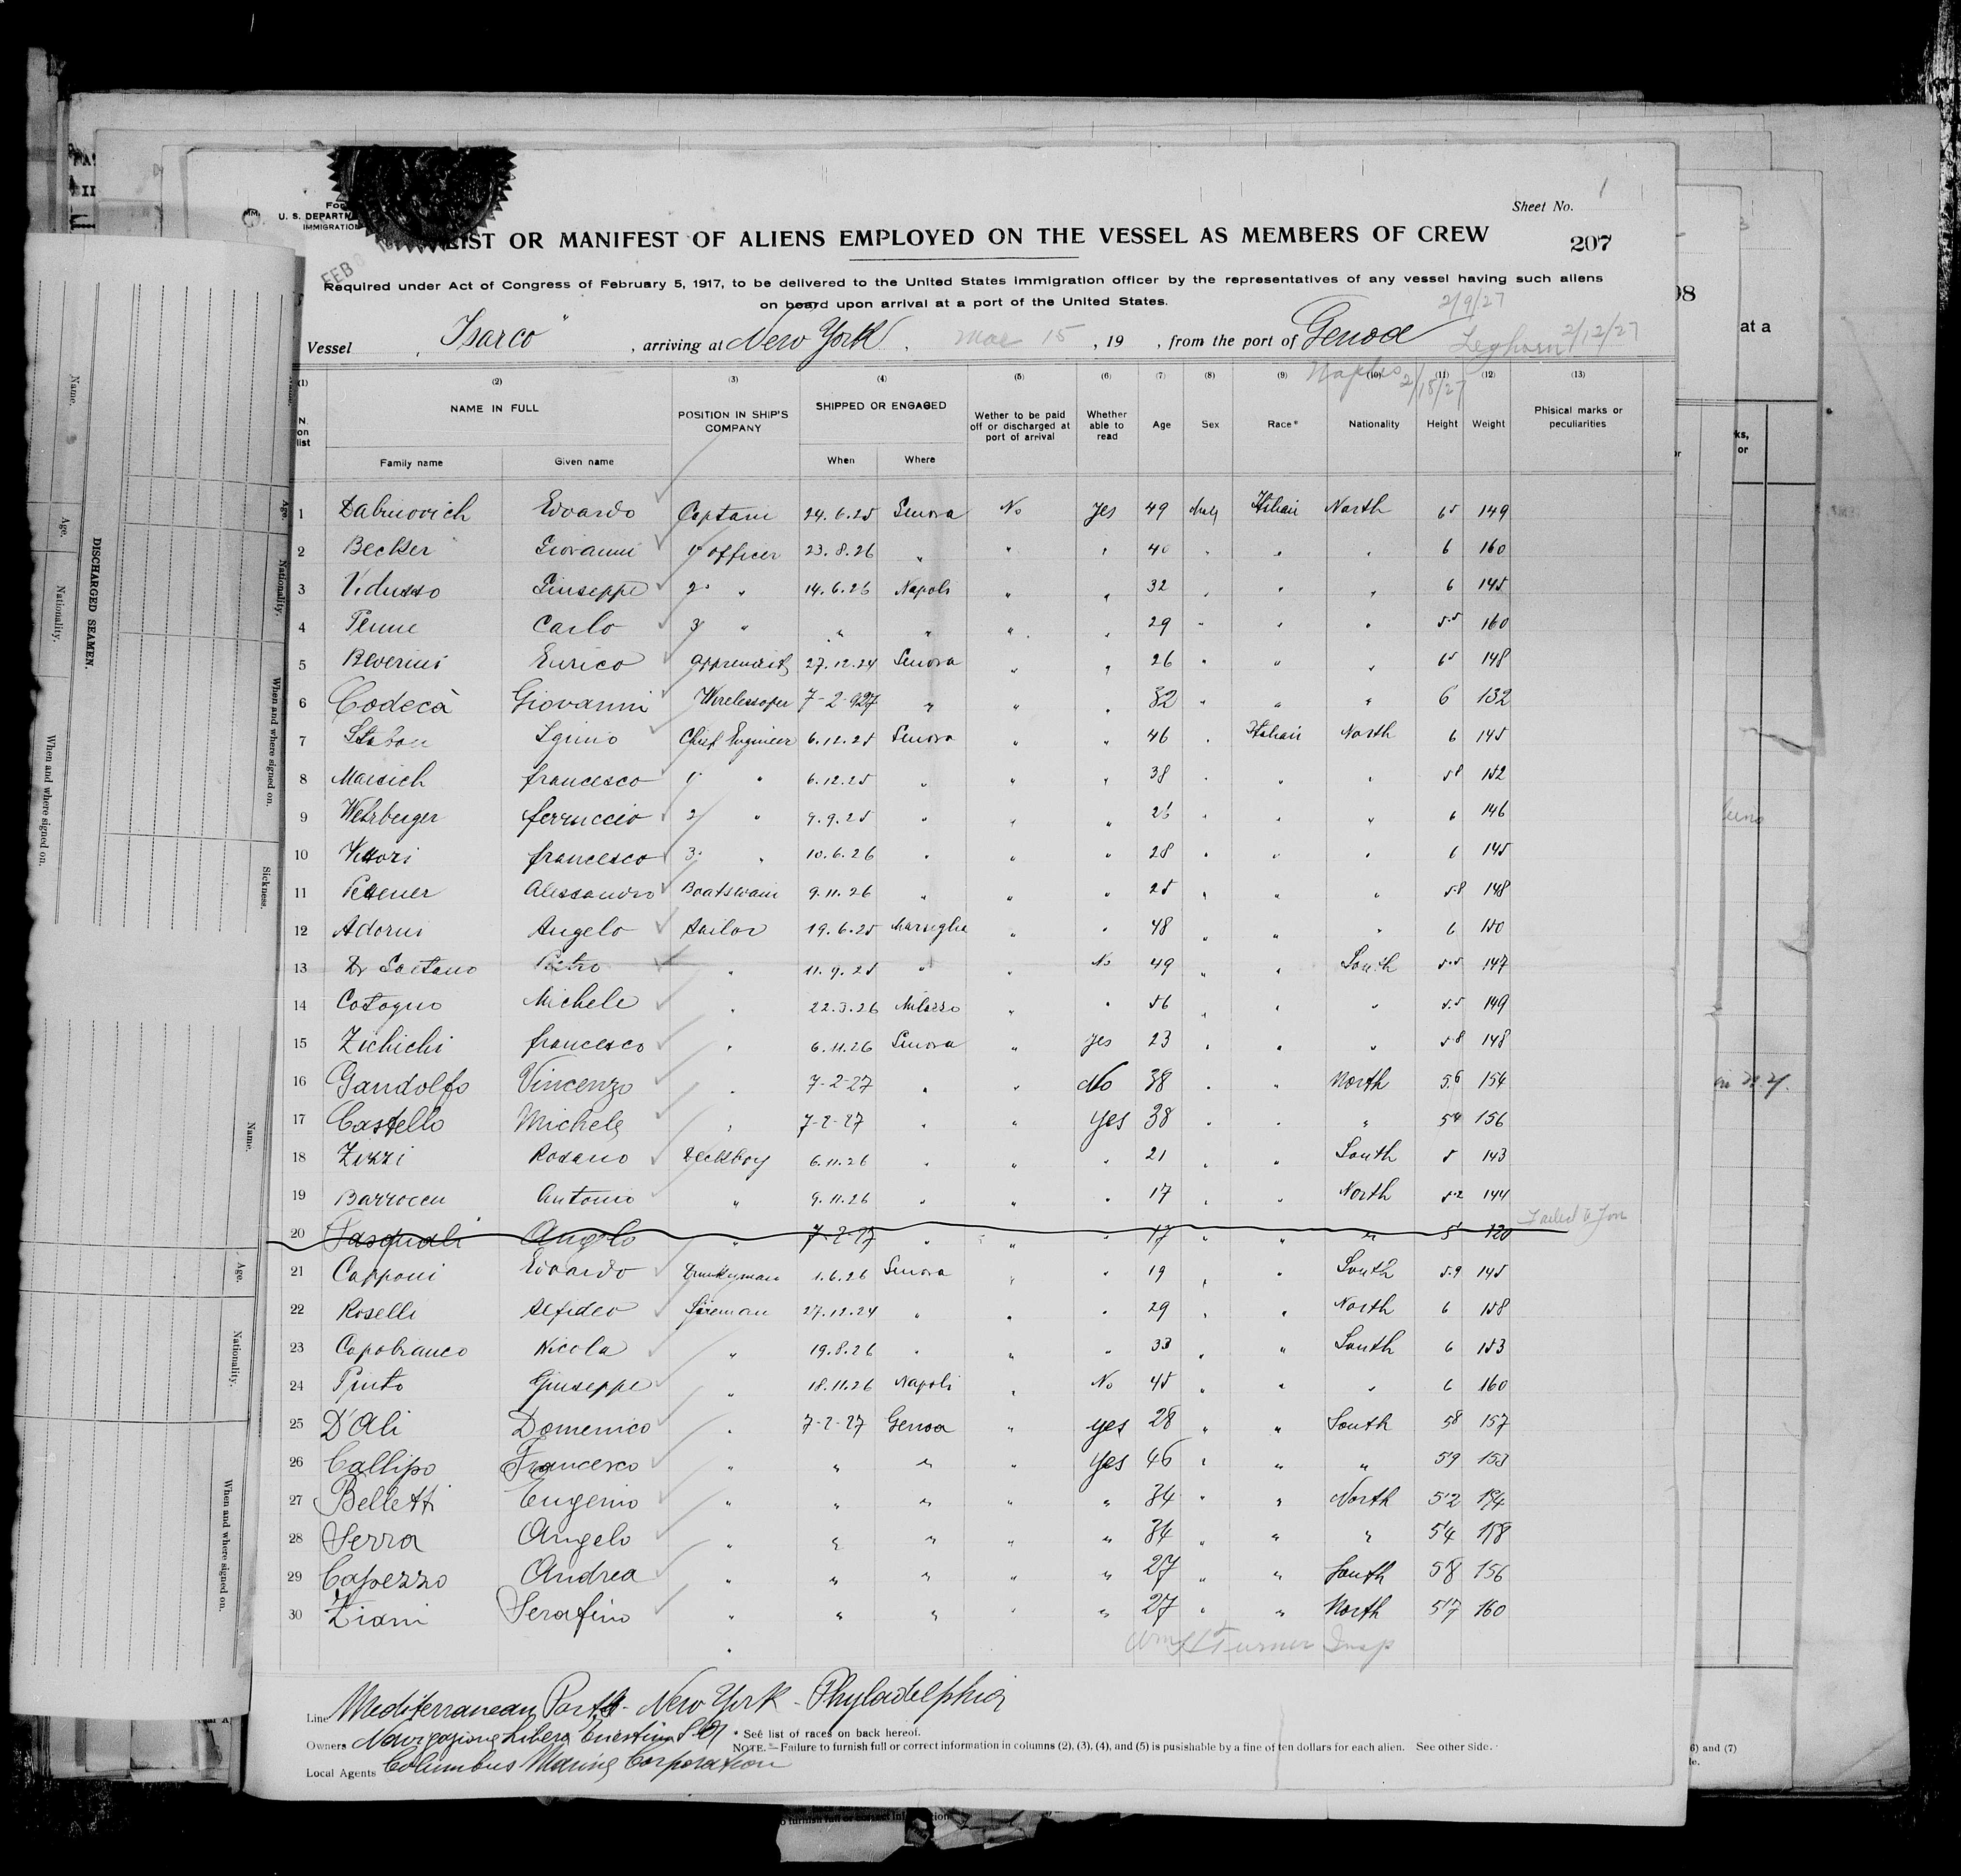 Sheet No. 1
U. S. DEPARTM
IMMIGRATION
LIST OR MANIFEST OF ALIENS EMPLOYED ON THE VESSEL AS MEMBERS OF CREW
207
FEB
Required under Act of Congress of February 5, 1917, to be delivered to the United States immigration officer by the representatives of any vessel having such aliens
on board upon arrival at a port of the United States.
2/9/27
Vessel "Isarco", arriving at New York, Mar 15, 19 , from the port of Genoa Leghorn 2/12/27
Naples 2/18/27
(1) (2) (3) (4) (5) (6) (7) (8) (9) (10) (11) (12) (13)
N. on list NAME IN FULL POSITION IN SHIP'S COMPANY SHIPPED OR ENGAGED Wether to be paid off or discharged at port of arrival Whether able to read Age Sex Race* Nationality Height Weight Phisical marks or peculiarities
Family name Given name When Where
1 Dabinovich Edoardo Captain 24.6.25 Genova No Yes 49 Male Italian North 65 149
2 Becker Giovanni 1° officer 23.8.26 " " " 40 " " " 6 160
3 Vidusso Giuseppe 2° " 14.6.26 Napoli " " 32 " " " 6 145
4 Penne Carlo 3 " " " " " 29 " " " 5.5 160
5 Beverini Enrico 27.12.24 Genova " " 26 " " " 65 148
6 Codecà Giovanni Wirelessoper 7-2-927 " " " 32 " " " 6 132
7 Igino Chief Engineer 6.12.25 Genova " " 46 " Italian North 6 145
8 Marsich francesco 1° " 6.12.25 " " " 38 " " " 58 152
9 Wehrberger ferruccio 2 " 9.9.25 " " " 26 " " " 6 146
10 Vittori francesco 3° " 10.6.26 " " " 28 " " " 6 145
11 Alessandro Boatswain 9.11.26 " " " 25 " " " 5.8 148
12 Adorni Angelo Sailor 19.6.25 Marsiglia " " 48 " " " 6 150
13 De Gaetano Pietro " 11.9.25 " " No 49 " " South 5.5 147
14 Cotogno Michele " 22.3.26 Milazzo " " 56 " " " 5.5 149
15 Zichichi francesco " 6.11.26 Genova " yes 23 " " " 5.8 148
16 Gandolfo Vincenzo " 7-2-27 " " No 38 " " North 5.6 154
17 Castello Michele " 7-2-27 " " Yes 38 " " " 54 156
18 Zizzi Rosario Decksboy 6.11.26 " " " 21 " " South 5 143
19 Barroccu Antonio " 9.11.26 " " " 17 " " North 5.2 144
20 Pasquali Angelo " 7-2-27 " " " 17 " " " 5 120 Failed to Join
21 Capponi Edoardo Dunkyman 1.6.26 Genova " " 19 " " South 5.9 145
22 Roselli Alfideo Fireman 27.12.24 " " " 29 " " North 6 158
23 Capobianco Nicola " 19.8.26 " " " 33 " " South 6 153
24 Pinto Giuseppe " 18.11.26 Napoli " No 45 " " " 6 160
25 D'Ali Domenico " 7-2-27 Genoa " yes 28 " " South 58 157
26 Callipo Francesco " " " " yes 46 " " " 5'9 153
27 Belletti Eugenio " " " " " 34 " " North 5'2 154
28 Serra Angelo " " " " " 34 " " " 5'4 158
29 Capezzo Andrea " " " " " 27 " " South 5'8 156
30 Ziani Serafino " " " " " 27 " " North 5'7 160
Turner Insp
Line Mediterranean Ports - New York - Phyladelphia
Owners Navigazione Libera Triestina S.A * See list of races on back hereof.
NOTE.—Failure to furnish full or correct information in columns (2), (3), (4), and (5) is pusishable by a fine of ten dollars for each alien. See other side.
Local Agents Columbus Marine Corporation
DISCHARGED SEAMEN
Name.
Age.
Nationality.
When and where signed on.
Age.
Nationality.
When and where signed on.
Sickness.
Name.
Age.
Nationality.
When and where signed on.
98
at a
ks,
or
6) and (7)